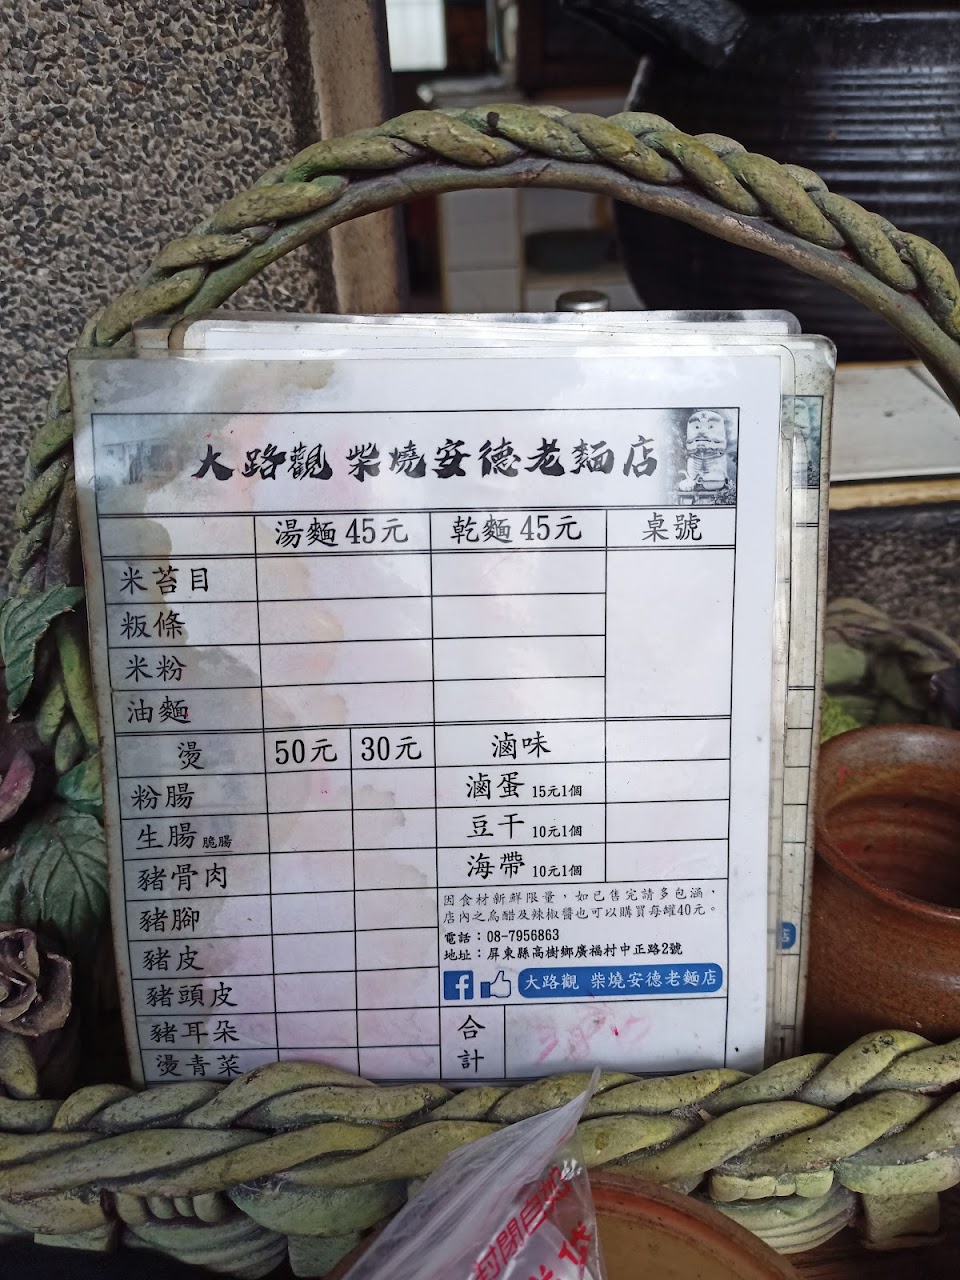 大路觀 柴燒安德老麵店
湯麵45元 乾麵45元 桌號
米苔目
粄條
米粉
油麵
燙 50元 30元 滷味
粉腸 滷蛋 15元1個
生腸 脆腸 豆干 10元1個
豬骨肉 海帶 10元1個
豬腳
豬皮
豬頭皮
豬耳朵
燙青菜
因食材新鮮限量，如已售完請多包涵，
店內之烏醋及辣椒醬也可以購買每罐40元。
電話：08-7956863
地址：屏東縣高樹鄉廣福村中正路2號
f 大路觀 柴燒安德老麵店
合計
店
封閉自